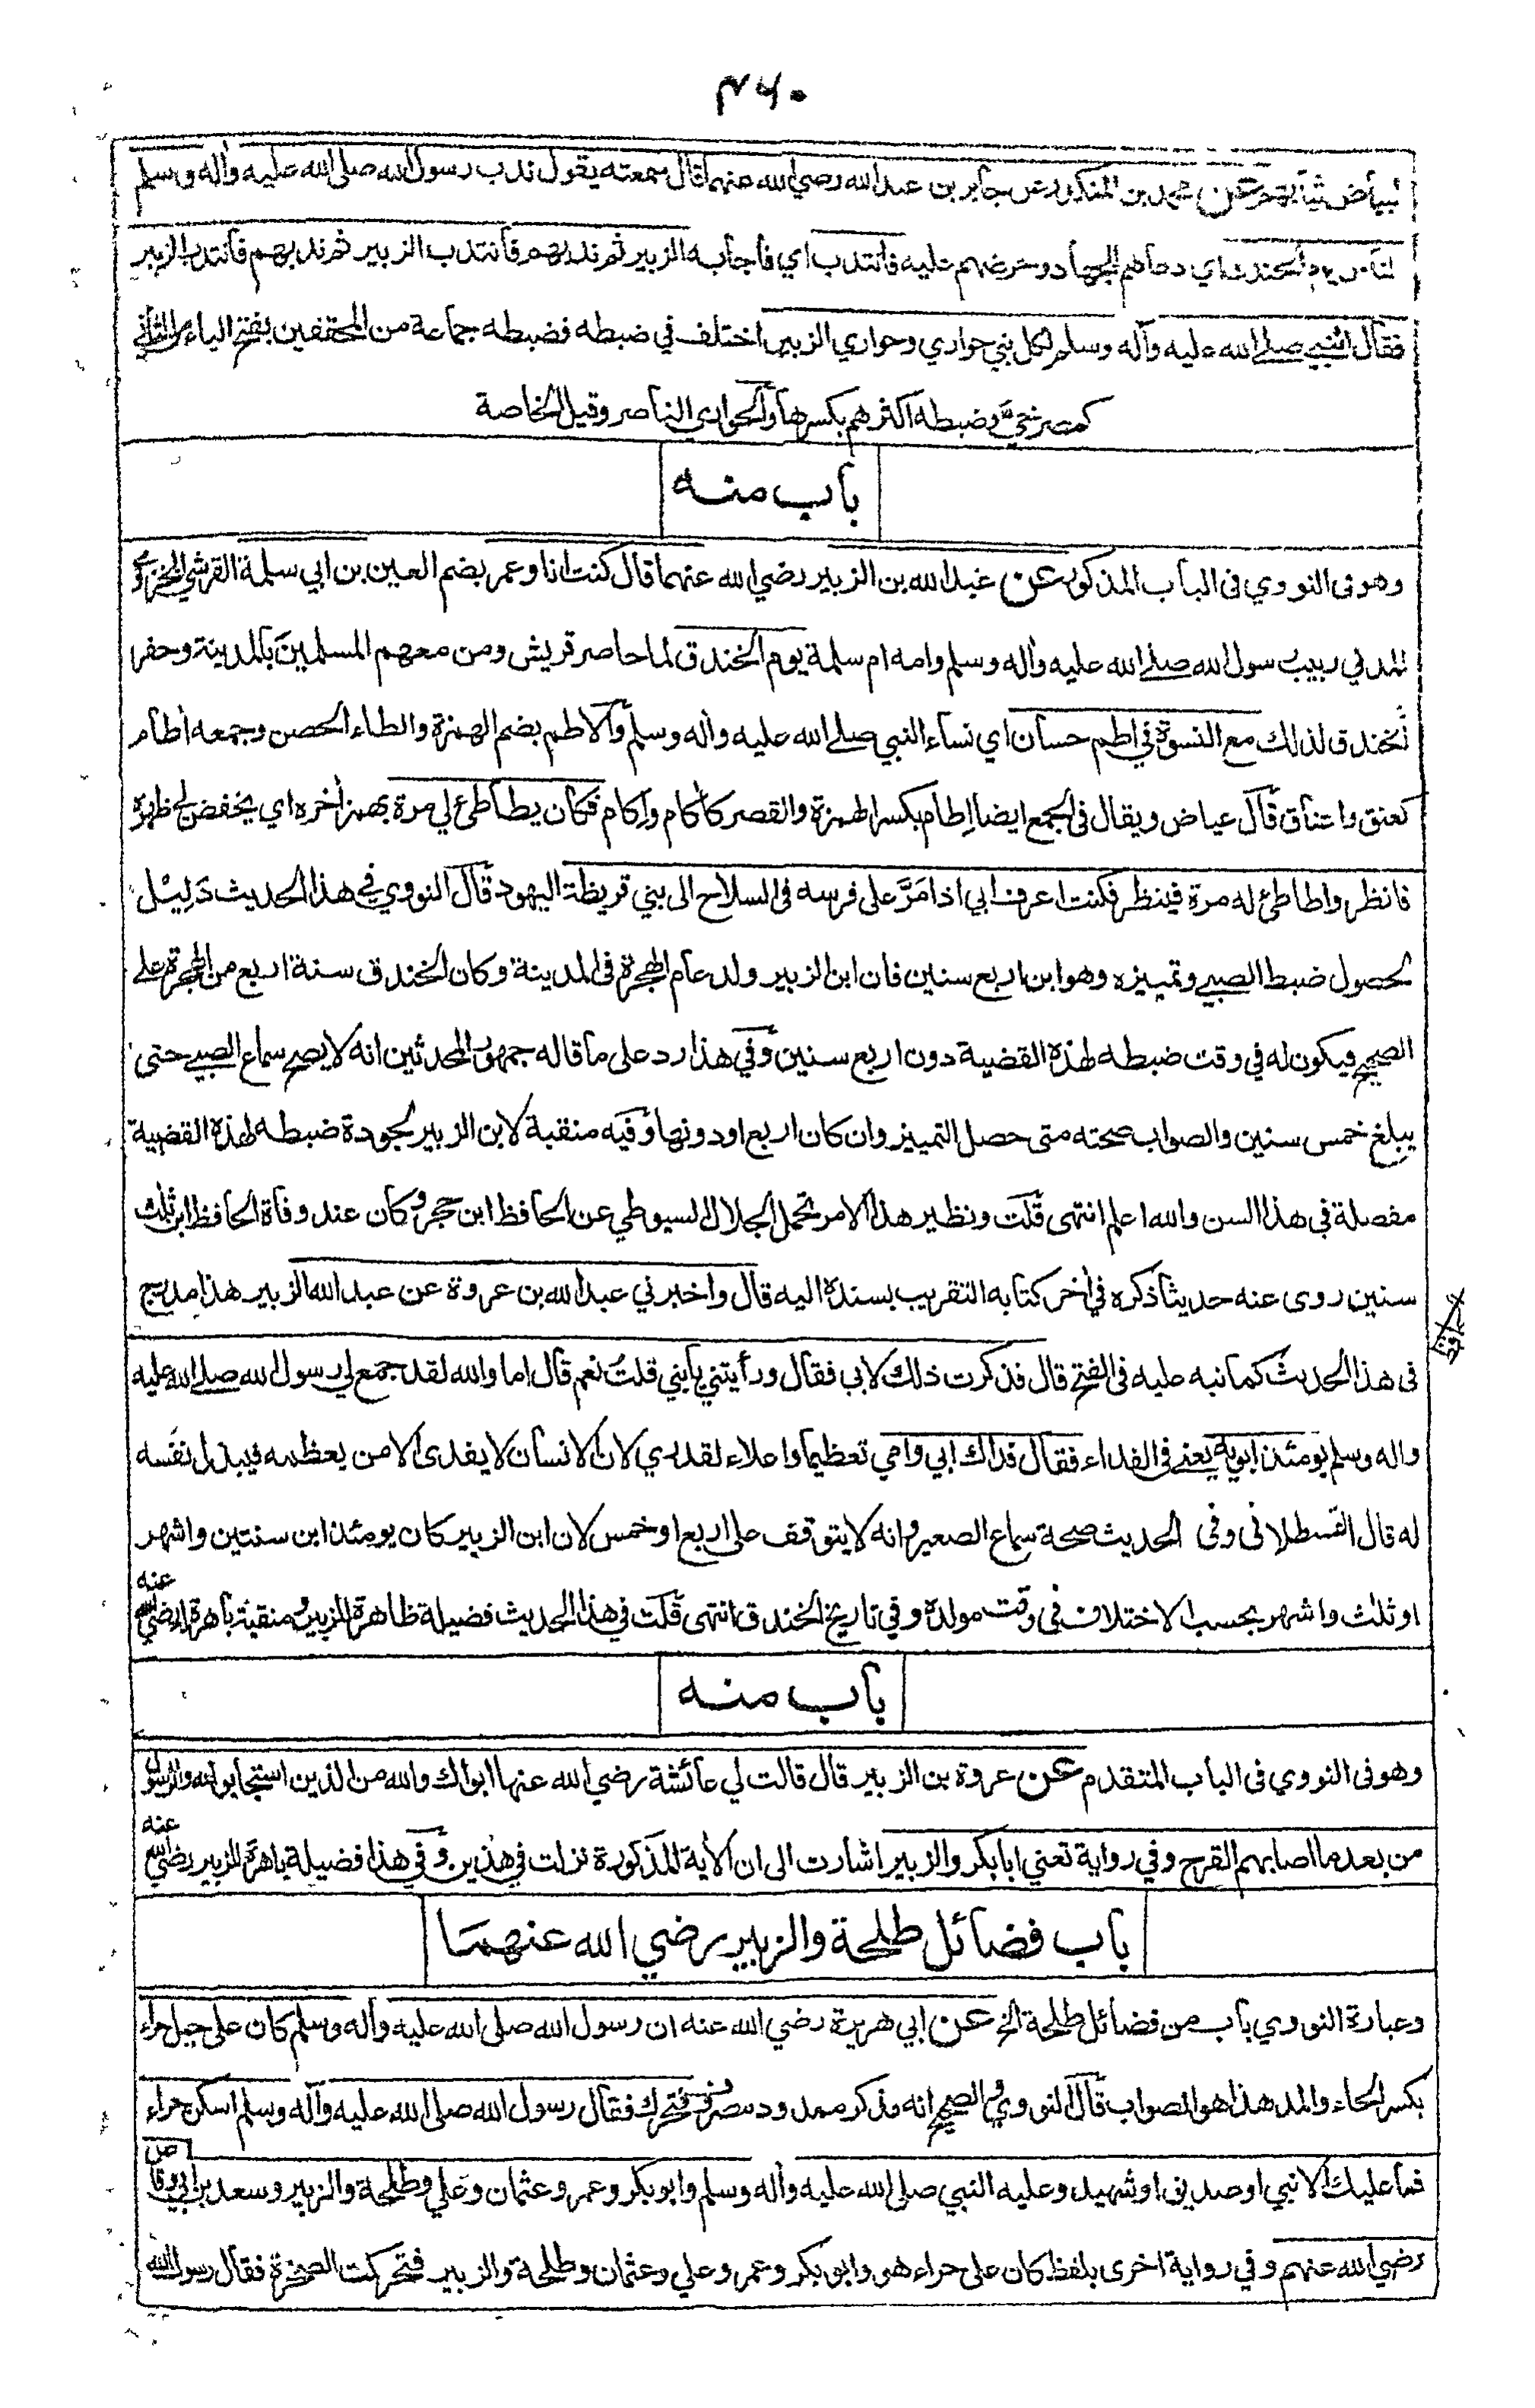 ٣٦٠
لبياض ثيابهم عن محمد بن المنكدر عن جابر بن عبد الله رضي الله عنهما قال سمعته يقول ندب رسول الله صلى الله عليه وآله وسلم
الناس يوم الخندق اي دعاهم للجهاد وحرضهم عليه فانتدب اي فأجابه الزبير ثم ندبهم فانتدب الزبير ثم ندبهم فانتدب الزبير
فقال النبي صلى الله عليه وآله وسلم لكل نبي حواري وحواري الزبير اختلف في ضبطه فضبطه جماعة من المحققين بفتح الياء الثاني
كمصرخيّ وضبطه اكثرهم بكسرها والحواري الناصر وقيل الخاصة
باب منه
وهو فى النووي فى الباب المذكور عن عبد الله بن الزبير رضي الله عنهما قال كنت انا وعمر بضم العين بن ابي سلمة القرشي المخزومي
المدني ربيب رسول الله صلى الله عليه وآله وسلم وامه ام سلمة يوم الخندق لما حاصر قريش ومن معهم المسلمين بالمدينة وحفر
الخندق لذلك مع النسوة في اطم حسان اي نساء النبي صلى الله عليه وآله وسلم والاطم بضم الهمزة والطاء الحصن وجمعه آطام
كعنق واعناق قال عياض ويقال فى الجمع ايضا إطام بكسر الهمزة والقصر كآكام وإكام فكان يطأطئ لي مرة بهمز آخره اي يخفض لي ظهره
فانظر واطاطئ له مرة فينظر فكنت اعرف ابي اذا مَرَّ على فرسه فى السلاح الى بني قريظة اليهود قال النووي في هذا الحديث دَلِيْل
لحصول ضبط الصبي وتمييزه وهو ابن اربع سنين فان ابن الزبير ولد عام الهجرة فى المدينة وكان الخندق سنة اربع من الهجرة على
الصحيح فيكون له في وقت ضبطه لهذه القضية دون اربع سنين وفي هذا رد على ما قاله جمهور المحدثين انه لا يصح سماع الصبي حتى
يبلغ خمس سنين والصواب صحته متى حصل التمييز وان كان اربع او دونها وفيه منقبة لابن الزبير لجودة ضبطه لهذه القضية
مفصلة في هذا السن والله اعلم انتهى قلت ونظير هذا الامر تحمل الجلال السيوطي عن الحافظ ابن حجر وكان عند وفاة الحافظ ابن ثلث
سنين روى عنه حديثا ذكره في آخر كتابه التقريب بسنده اليه قال واخبرني عبد الله بن عروة عن عبد الله الزبير هذا مدرج
فى هذا الحديث كما نبه عليه فى الفتح قال فذكرت ذلك لابي فقال ورأيتني يا بني قلتُ نعم قال اما والله لقد جمع لي رسول الله صلى الله عليه
واله وسلم يومئذ ابويه يعني فى الفداء فقال فداك ابي وامي تعظيما واعلاء لقدري لان الانسان لا يفدى الا من يعظمه فيبذل نفسه
له قال القسطلانى وفى الحديث صحة سماع الصغير وانه لا يتوقف على اربع او خمس لان ابن الزبير كان يومئذ ابن سنتين واشهر
او ثلث واشهر بحسب الاختلاف فى وقت مولده وفي تاريخ الخندق انتهى قلت في هذا الحديث فضيلة ظاهرة للزبير ومنقبة باهرة له رضي الله عنه
باب منه
وهو فى النووي فى الباب المتقدم عن عروة بن الزبير قال قالت لي عائشة رضي الله عنها ابواك والله من الذين استجابوا لله والرسول
من بعد ما اصابهم القرح وفي رواية تعني ابا بكر والزبير اشارت الى ان الآية المذكورة نزلت في هذين وفي هذا فضيلة باهرة للزبير رضي الله عنه
باب فضائل طلحة والزبير رضي الله عنهما
وعبارة النووي باب من فضائل طلحة الخ عن ابي هريرة رضي الله عنه ان رسول الله صلى الله عليه وآله وسلم كان على جبل حراء
بكسر الحاء والمد هذا هو الصواب قال النووي والصحيح انه مذكر ممدود مصروف فتحرك فقال رسول الله صلى الله عليه وآله وسلم اسكن حراء
فما عليك الا نبي او صديق او شهيد وعليه النبي صلى الله عليه وآله وسلم وابو بكر وعمر وعثمان وعلي وطلحة والزبير وسعد بن ابي وقاص
رضي الله عنهم وفي رواية اخرى بلفظ كان على حراء هو وابو بكر وعمر وعلي وعثمان وطلحة والزبير فتحركت الصخرة فقال رسول الله